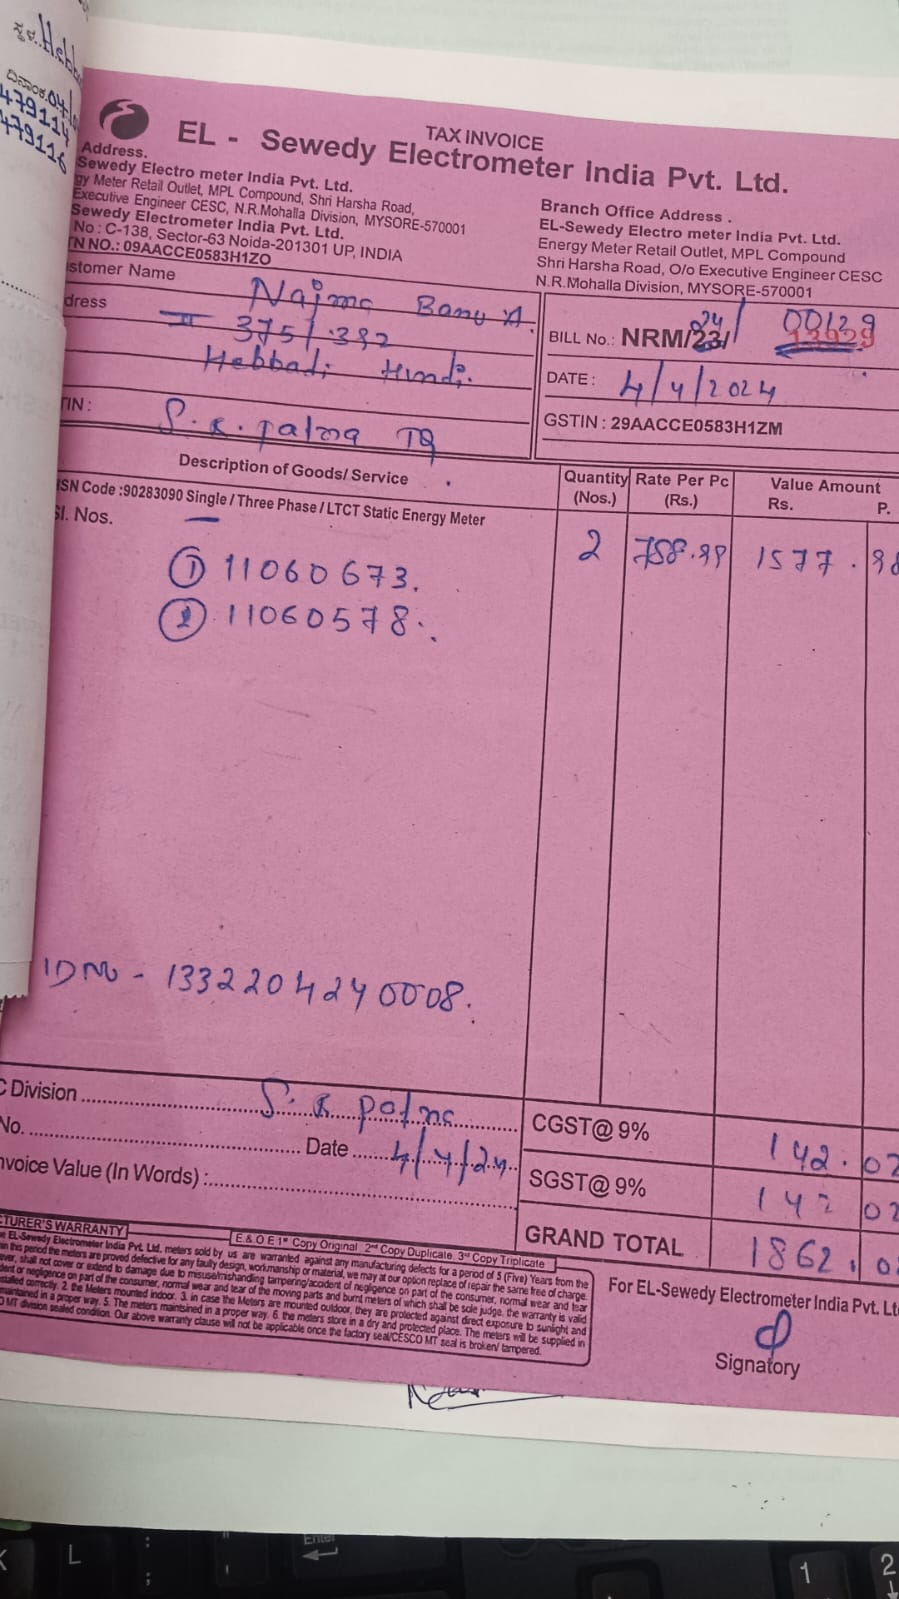 ಸ್ಥಳ..Hebba
ದಿನಾಂಕ.04/
479114
479116
TAX INVOICE
EL - Sewedy Electrometer India Pvt. Ltd.
Address.
Sewedy Electro meter India Pvt. Ltd.
gy Meter Retail Outlet, MPL Compound, Shri Harsha Road,
Executive Engineer CESC, N.R.Mohalla Division, MYSORE-570001
Sewedy Electrometer India Pvt. Ltd.
No : C-138, Sector-63 Noida-201301 UP, INDIA
TN NO.: 09AACCE0583H1ZO
Branch Office Address .
EL-Sewedy Electro meter India Pvt. Ltd.
Energy Meter Retail Outlet, MPL Compound
Shri Harsha Road, O/o Executive Engineer CESC
N.R.Mohalla Division, MYSORE-570001
stomer Name Najma Banu A.
dress II 375/382
Hebbadi Hundi.
TIN : S. R. patna TQ
BILL No.: NRM/23/ 24/ 00129
13929
DATE : 4/4/2024
GSTIN : 29AACCE0583H1ZM
Description of Goods/ Service
Quantity (Nos.) Rate Per Pc (Rs.) Value Amount Rs. P.
SN Code :90283090 Single / Three Phase / LTCT Static Energy Meter
Sl. Nos.
2 788.99 1577.98
① 11060673.
② 11060578.
IDN0 - 1332204240008.
C Division S. R patna
No. Date 4/4/24
nvoice Value (In Words) :
CGST@ 9% 142.02
SGST@ 9% 142 02
GRAND TOTAL 1862.0
E & O E 1st Copy Original 2nd Copy Duplicate 3rd Copy Triplicate
CTURER'S WARRANTY
EL-Sewedy Electrometer India Pvt. Ltd. meters sold by us are warranted against any manufacturing defects for a period of 5 (Five) Years from the
in this period the meters are proved defective for any faulty design, workmanship or material, we may at our option replace of repair the same free of charge.
ever, shall not cover or extend to damage due to misuse/mishandling tampering/acodent of negligence on part of the consumer, normal wear and tear
dent or negligence on part of the consumer, normal wear and tear of the moving parts and burnt meters of which shall be sole judge. the warranty is valid
stalled correctly. 2. the Meters mounted indoor. 3. in case the Meters are mounted outdoor, they are protected against direct exposure to sunlight and
maintained in a proper way. 5. The meters maintsined in a proper way. 6. the meters store in a dry and protected place. The meters will be supplied in
O MT division sealed condition. Our above warranty clause will not be applicable once the factory seal/CESCO MT seal is broken/ tampered.
For EL-Sewedy Electrometer India Pvt. Lt
Signatory
K L : ; " ' Enter 1 2